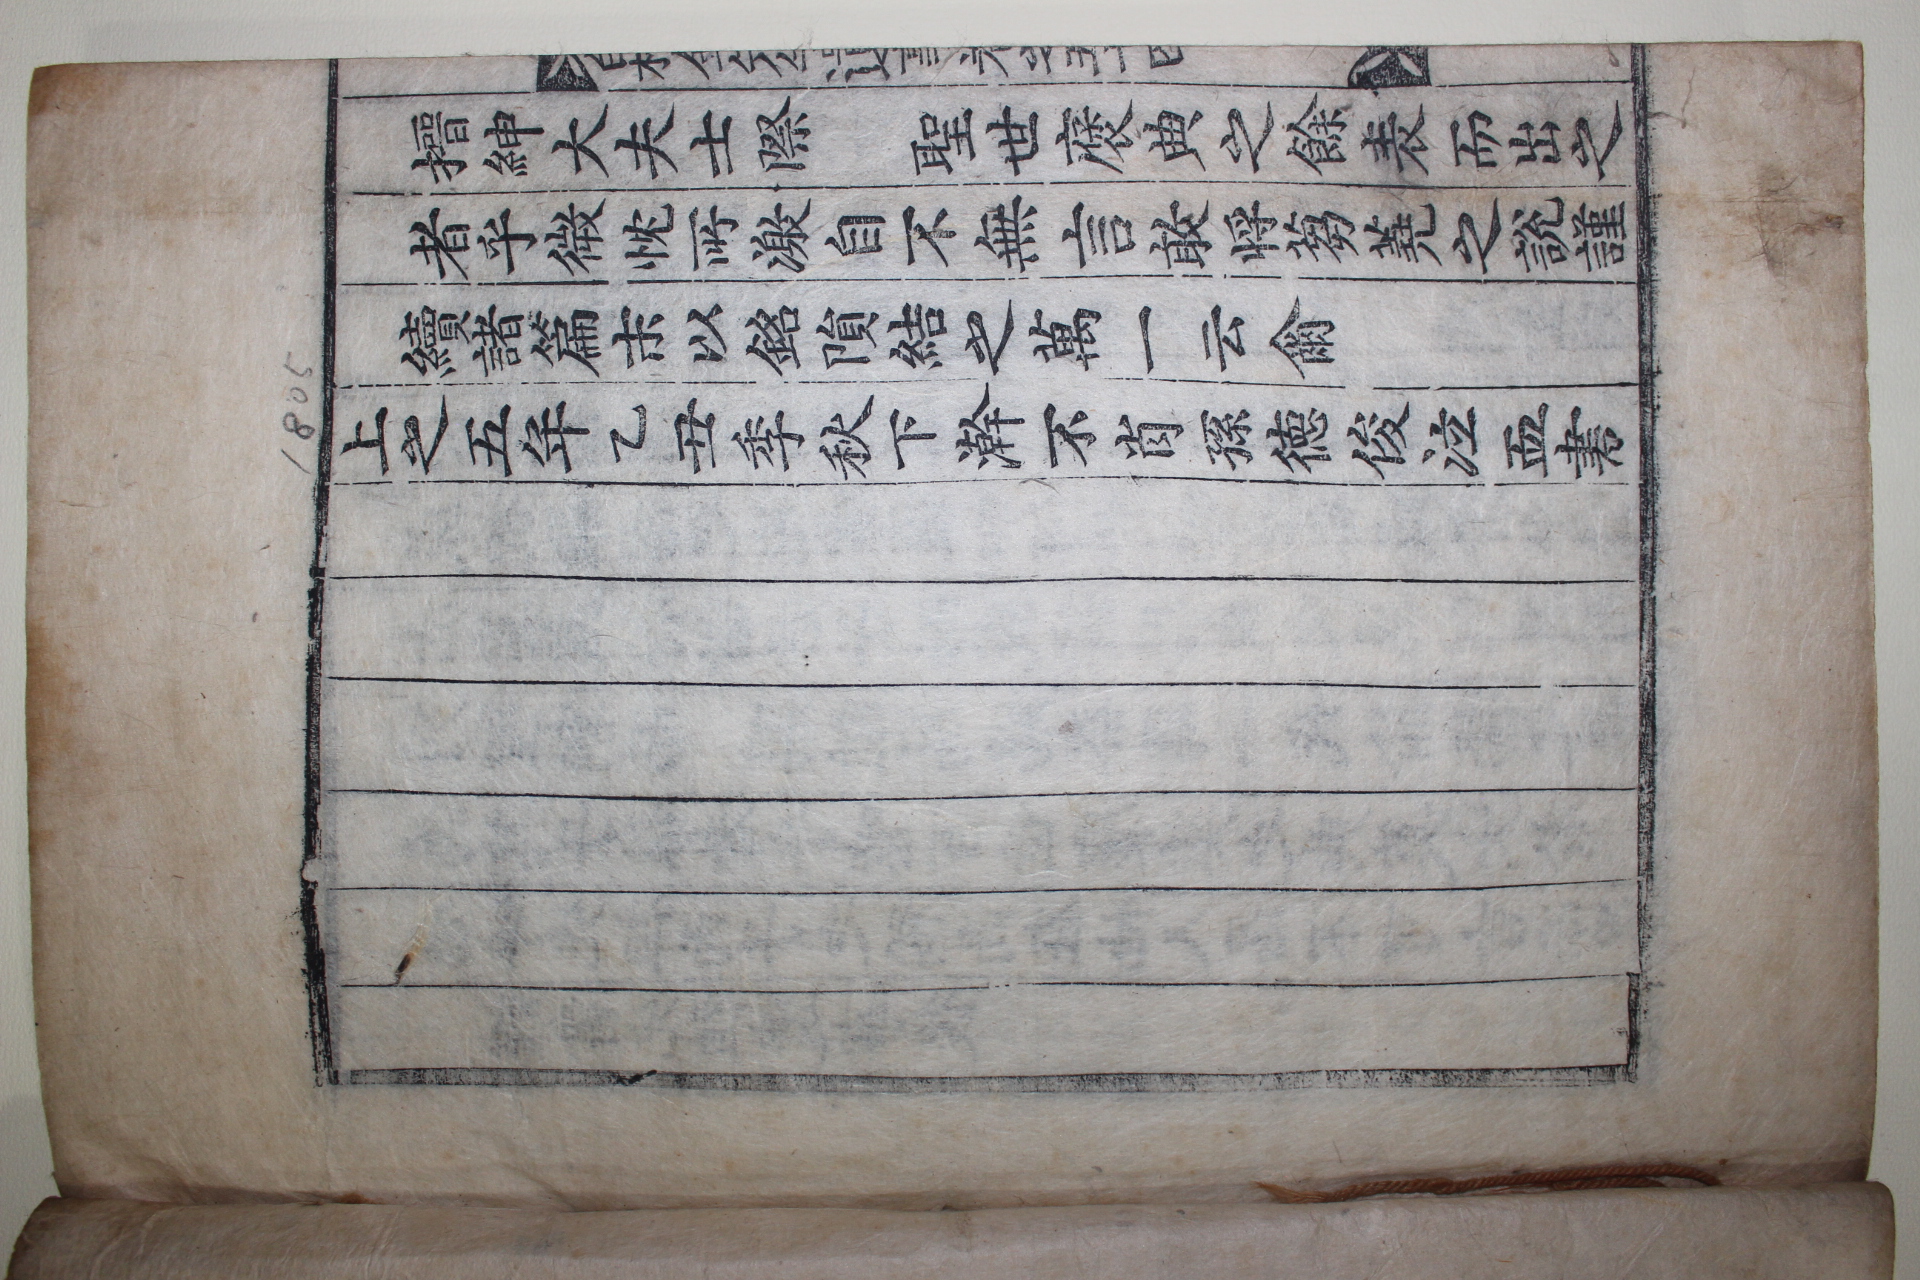 1805
搢紳大夫士際 聖世褒典之餘表而出之
者乎微忱所激自不無言敢將蒭蕘之說謹
續諸篇末以銘隕結之萬一云爾
上之五年乙丑季秋下澣不肖孫德俊泣血書
金先生遺書卷之五 十四